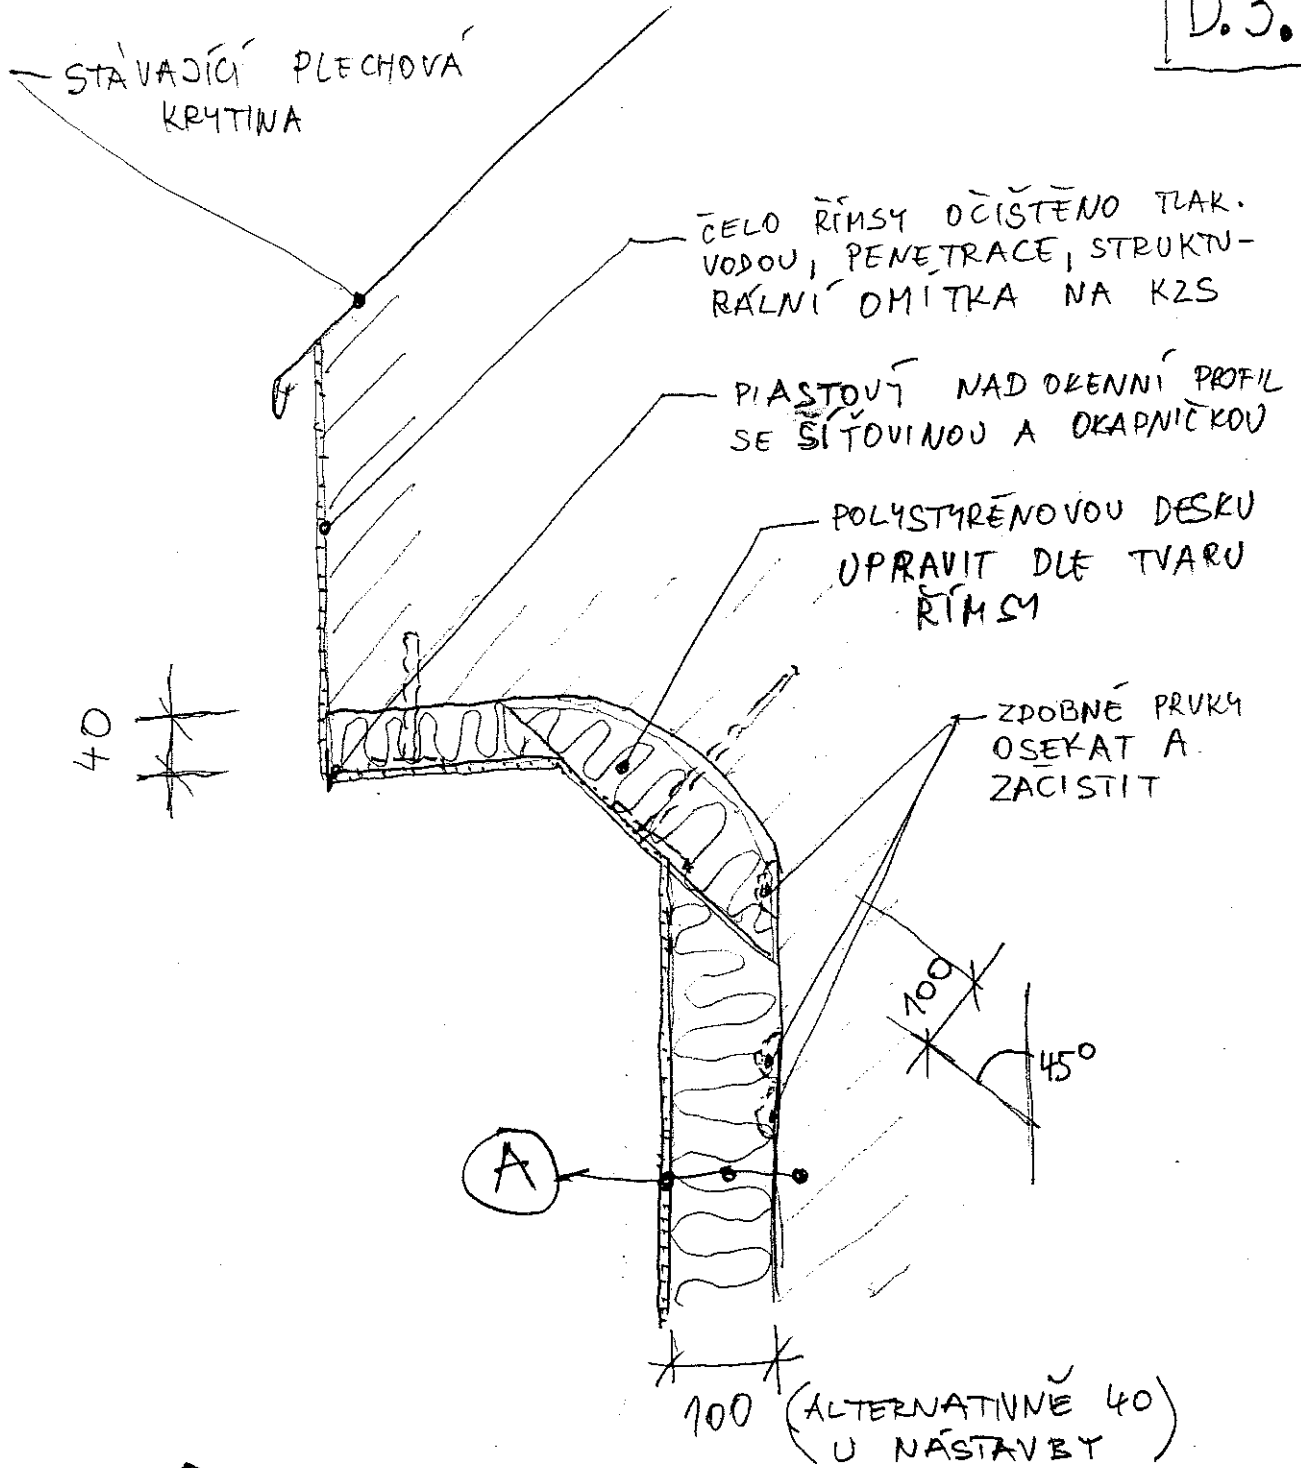 D.3.
STÁVAJÍCÍ PLECHOVÁ
KRYTINA
ČELO ŘÍMSY OČIŠTĚNO TLAK.
VODOU, PENETRACE, STRUKTU-
RÁLNÍ OMÍTKA NA KZS
PLASTOVÝ NAD OKENNÍ PROFIL
SE SÍŤOVINOU A OKAPNIČKOU
POLYSTYRÉNOVOU DESKU
UPRAVIT DLE TVARU
ŘÍMSY
40
ZDOBNÉ PRVKY
OSEKAT A
ZAČISTIT
100
45°
A
100 (ALTERNATIVNĚ 40)
U NÁSTAVBY